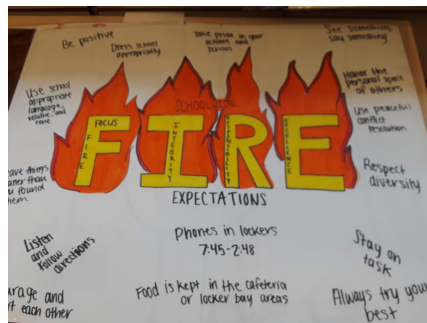 Be positive
Dress school
appropriately
Take pride in your
actions and
school
See something,
say something
Use school
appropriate
language,
volume, and
tone
SCHOOLWIDE
Honor the
personal space
of others
Use peaceful
conflict
resolution
FIRE
FOCUS
FIRE
INTEGRITY
RESPONSIBILITY
EXCELLENCE
than
you found
them
Respect
diversity
EXPECTATIONS
Listen
and
follow
directions
Phones in lockers
7:45-2:48
Stay on
task
and
each other
Food is kept in the cafeteria
or locker bay areas
Always try your
best